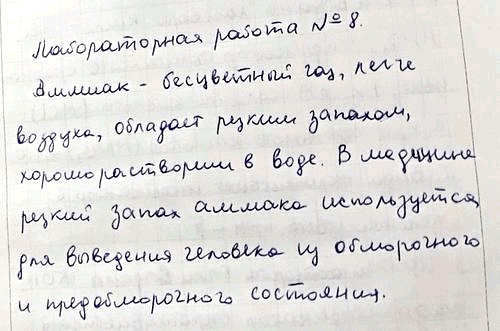 Лабораторная работа № 8.
Аммиак - бесцветный газ, легче
воздуха, обладает резким запахом,
хорошо растворим в воде. В медицине
резкий запах аммака используется
для выведения человека из обморочного
и предобморочного состояния.